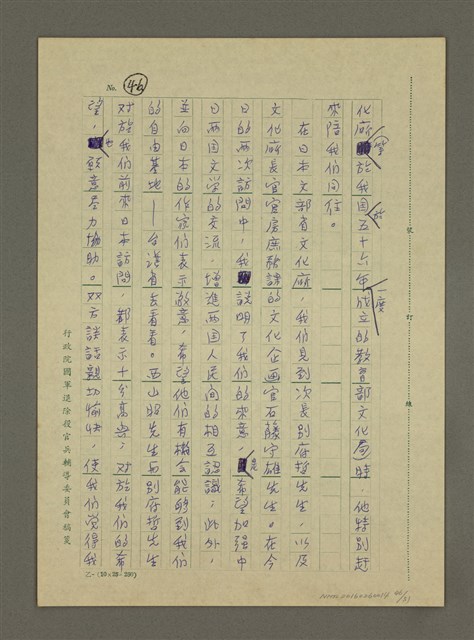 No. 46
化廳於我国五十六年一度成立的教育部文化局時，他特別趕
來陪我們同往。
在日本文部省文化廳，我們見到次長別府哲先生，以及
文化廳長官官房庶務課的文化企画官石藤守雄先生。在今
日的兩次訪問中，我說明了我們的來意，是希望加强中
日两国文学的交流，增進两国人民間的相互認識；此外，
並向日本的作家們表示敬意，希望他們有機会能够到我們
的自由基地——台湾省去看看。西山昭先生与別府哲先生
对於我們前來日本訪問，都表示十分高興；对於我們的希
望，也願意尽力協助。双方談話親切愉快，使我們觉得我
行政院國軍退除役官兵輔導委員會稿箋
訂
線